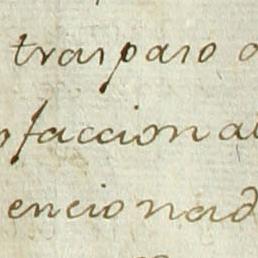 traspaso
faccion al
encionad